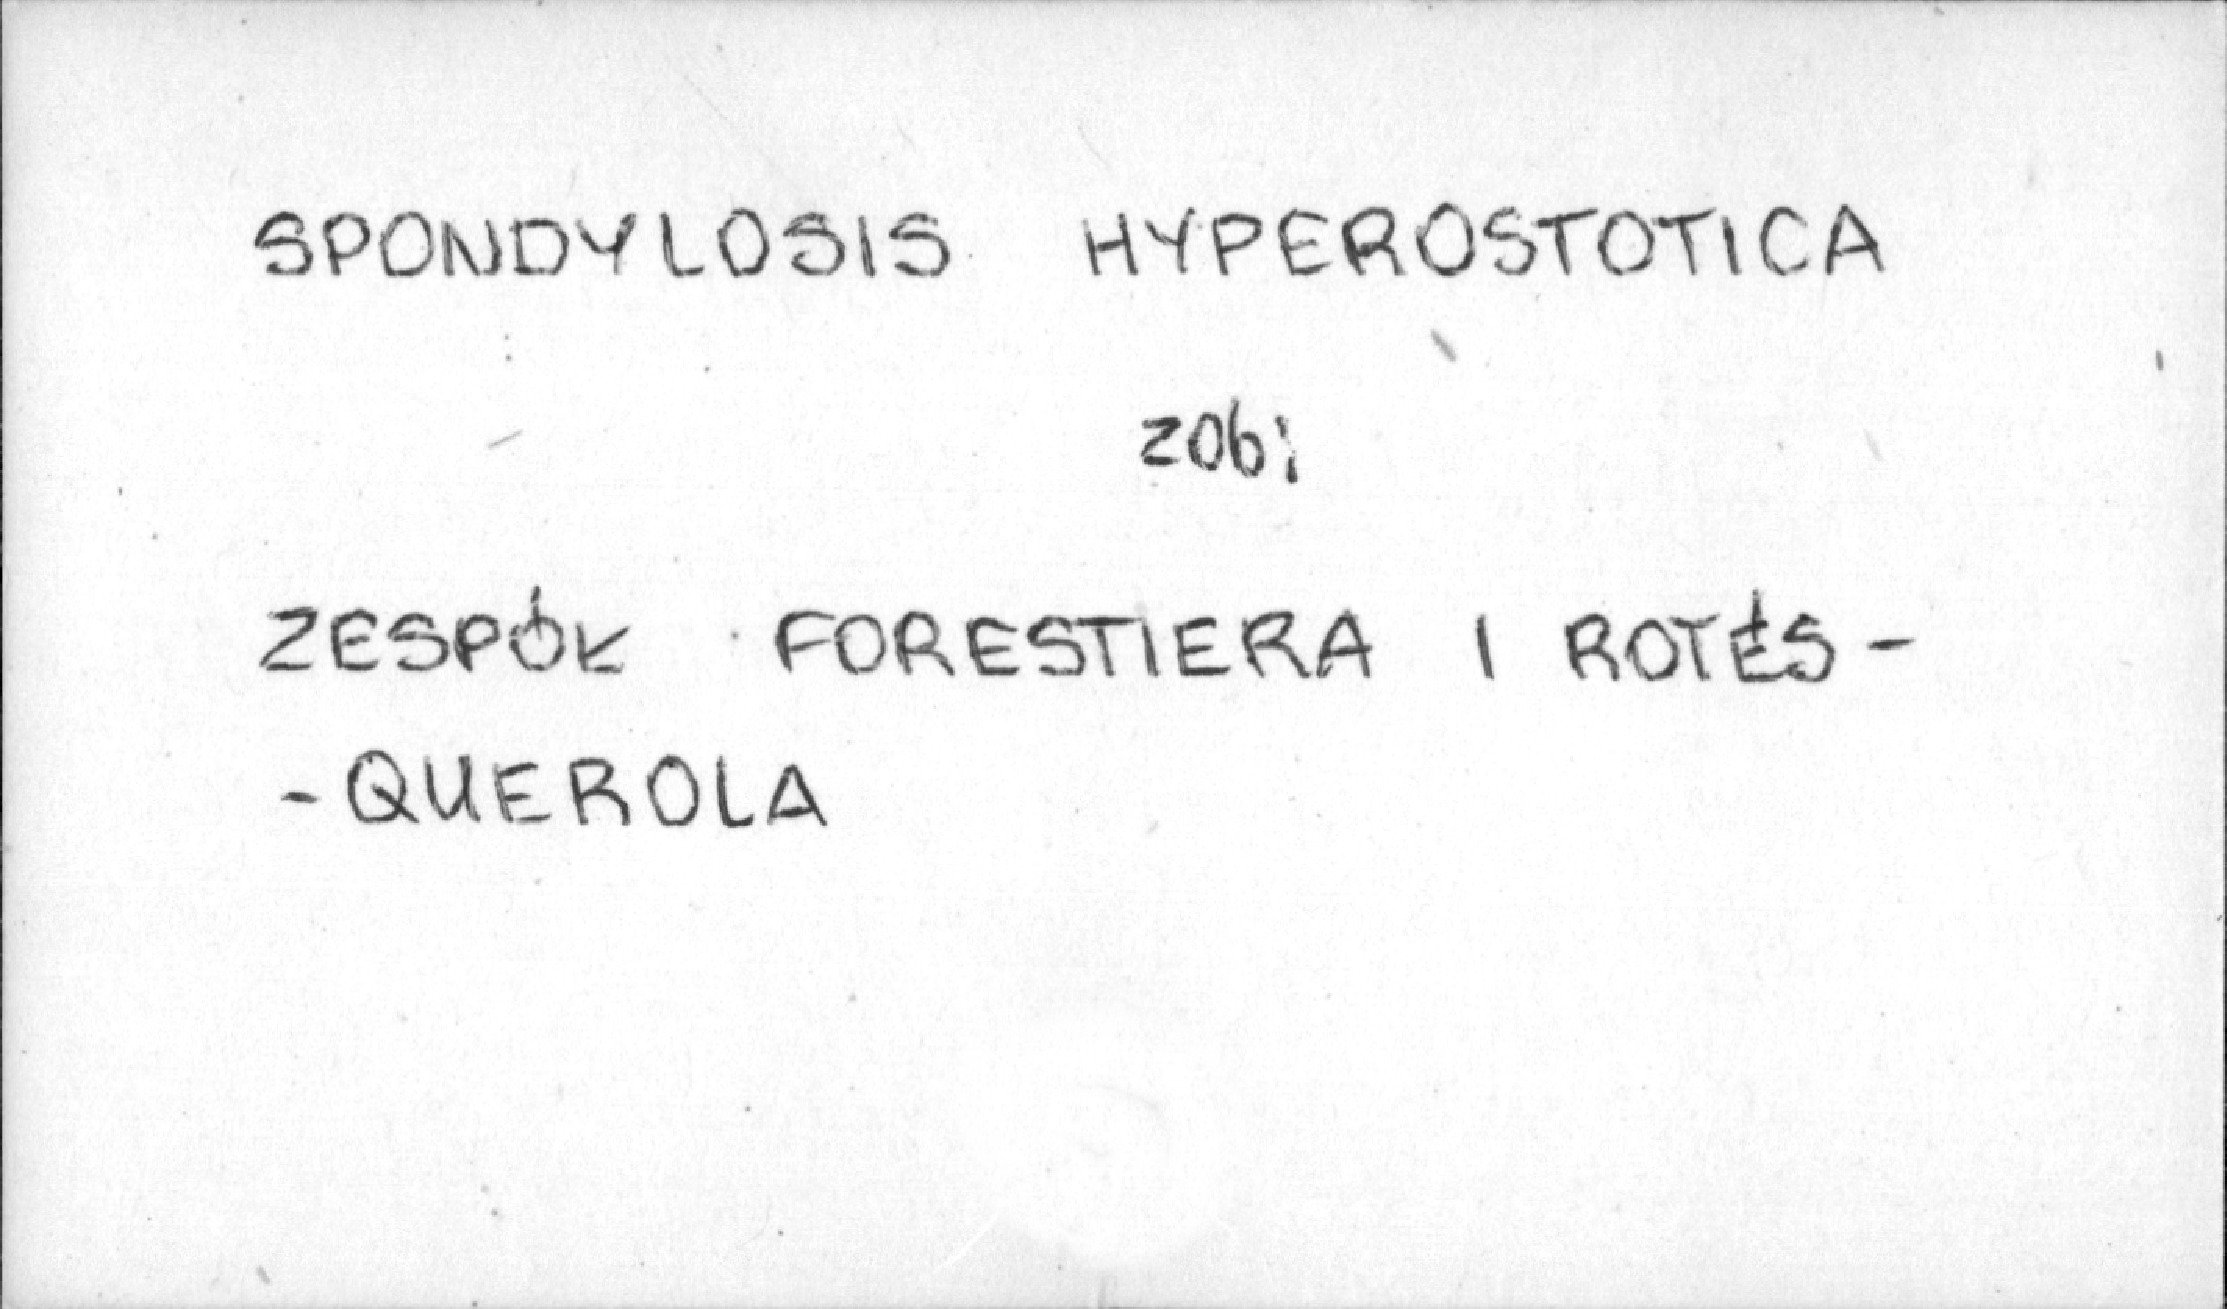 SPONDYLOSIS HYPEROSTOTICA
zob:
ZESPÓŁ FORESTIERA I ROTÉS-
-QUEROLA